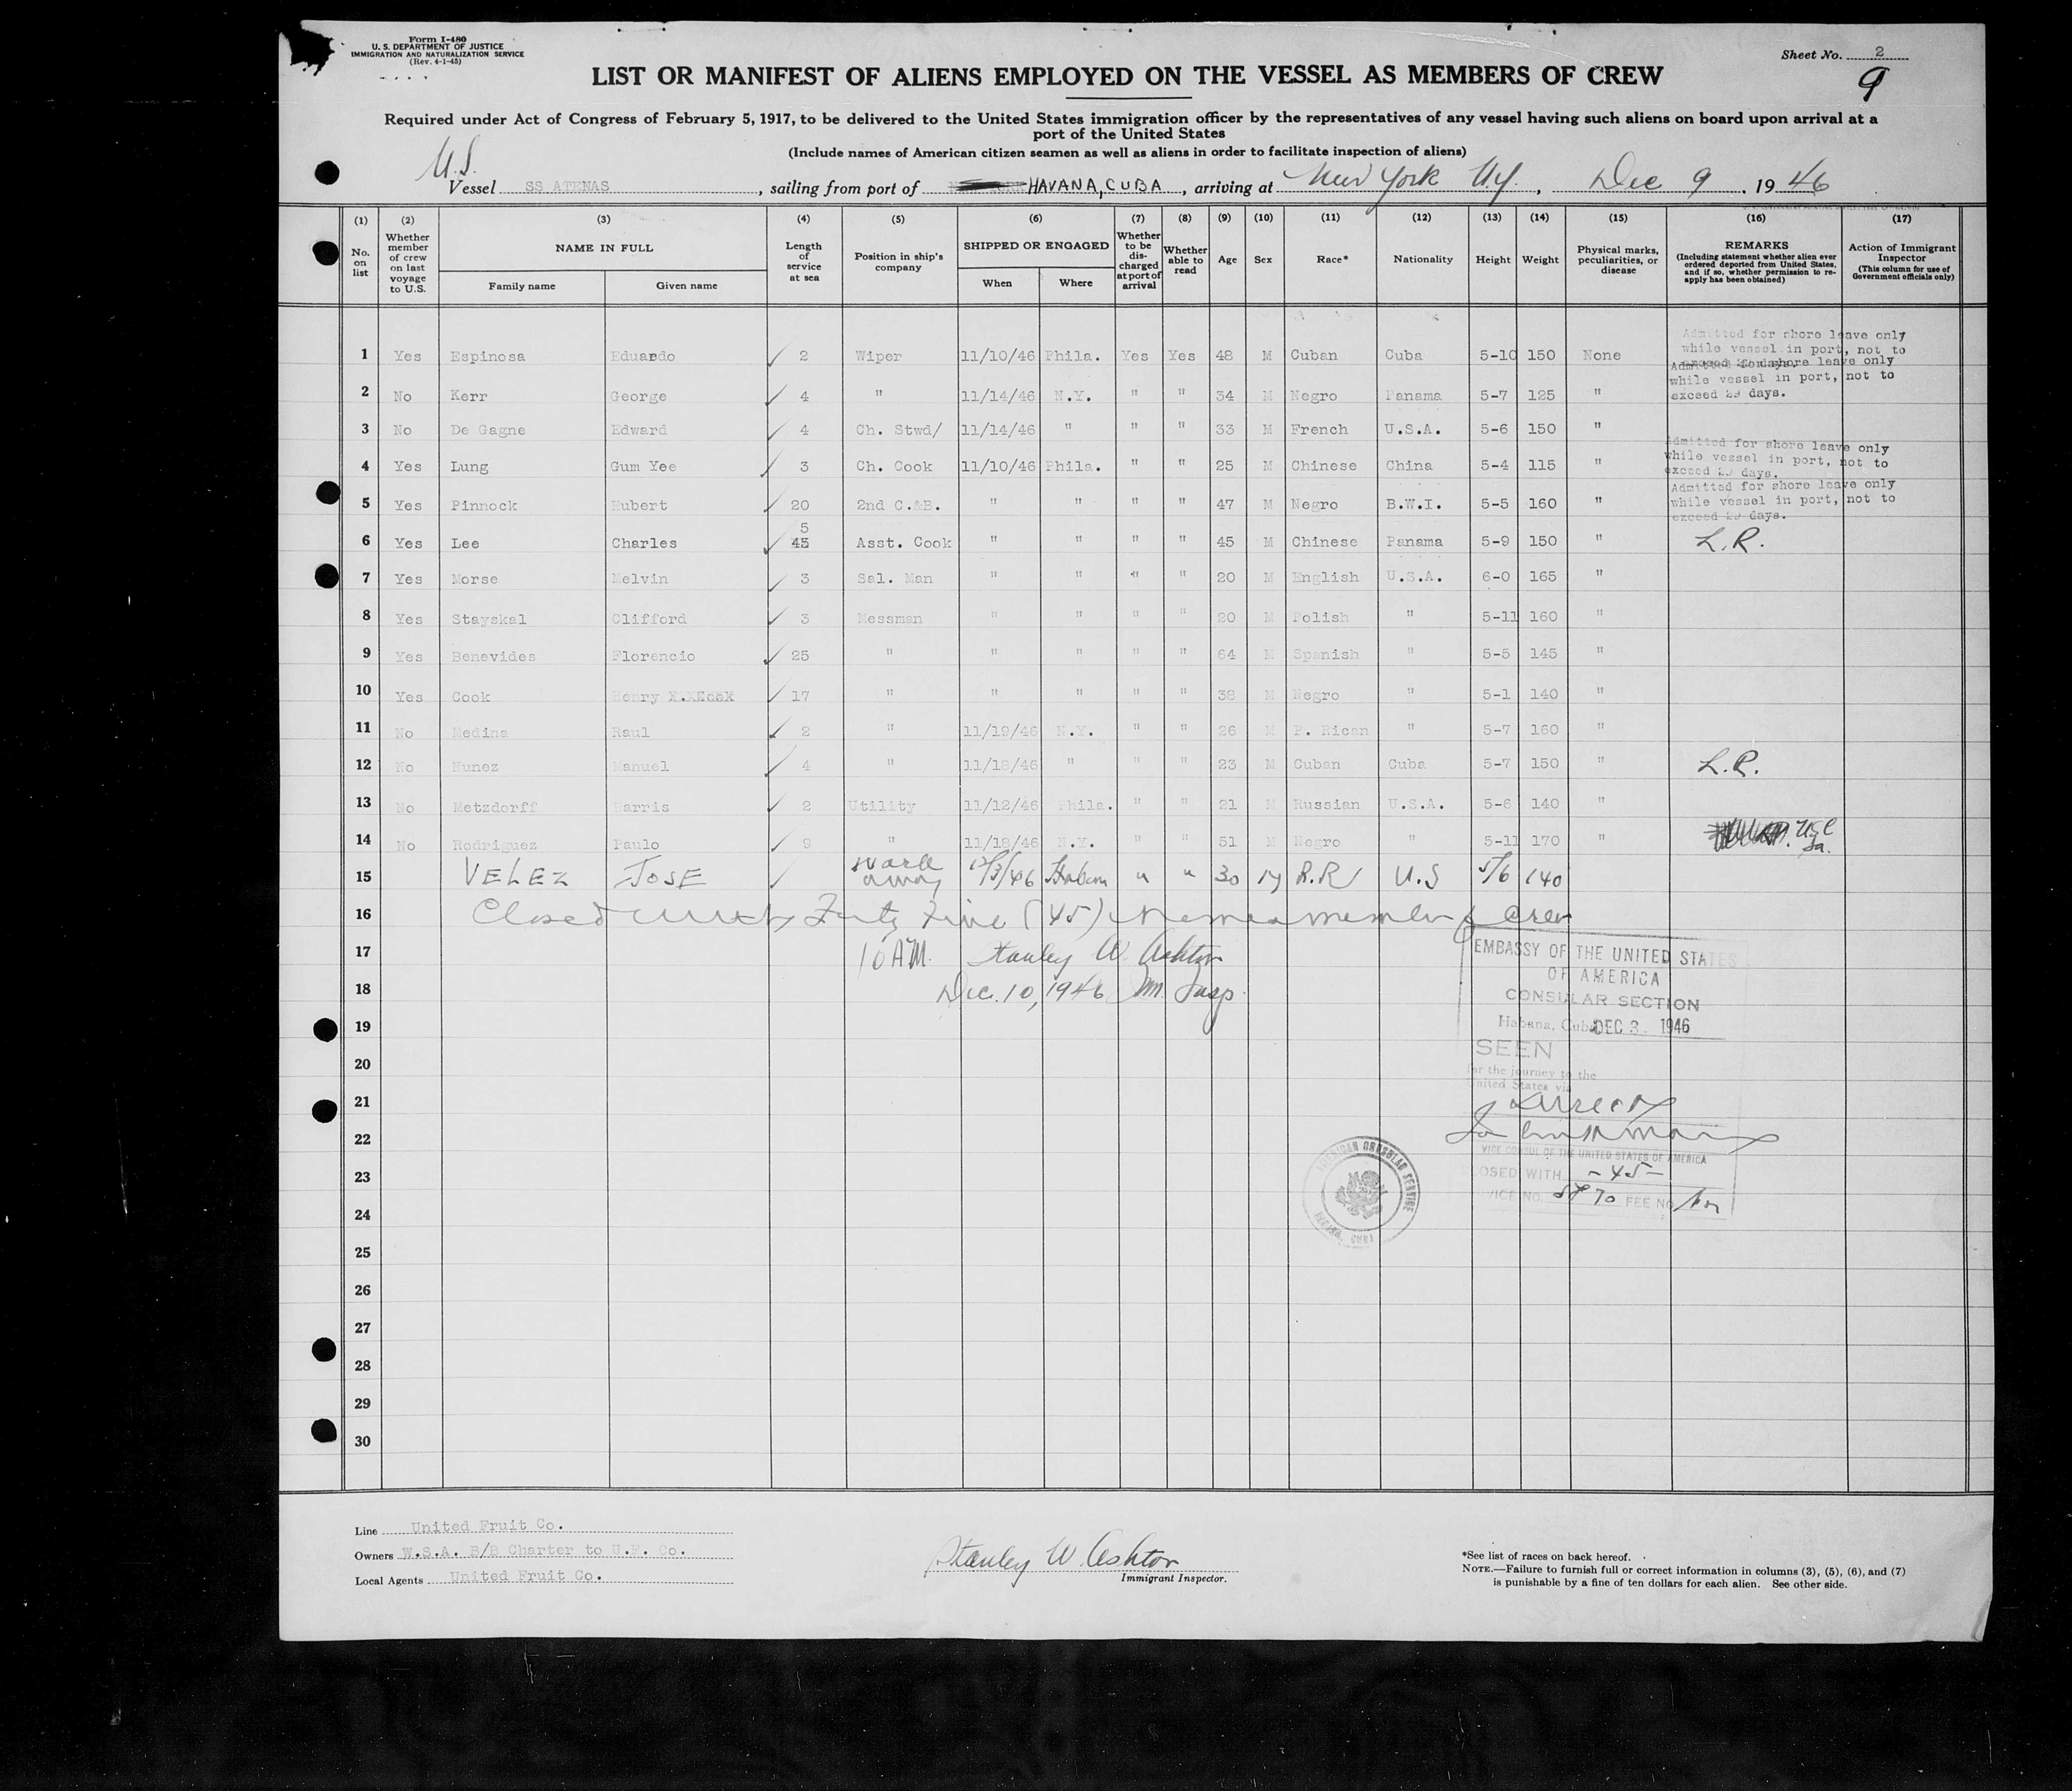 Form I-480
U. S. DEPARTMENT OF JUSTICE
IMMIGRATION AND NATURALIZATION SERVICE
(Rev. 4-1-45)
Sheet No. 2
9
LIST OR MANIFEST OF ALIENS EMPLOYED ON THE VESSEL AS MEMBERS OF CREW
Required under Act of Congress of February 5, 1917, to be delivered to the United States immigration officer by the representatives of any vessel having such aliens on board upon arrival at a
port of the United States
(Include names of American citizen seamen as well as aliens in order to facilitate inspection of aliens)
U.S.
Vessel SS ATENAS, sailing from port of HAVANA, CUBA, arriving at New York N.Y., Dec 9, 1946
(1) (2) (3) (4) (5) (6) (7) (8) (9) (10) (11) (12) (13) (14) (15) (16) (17)
No. on list
Whether member of crew on last voyage to U.S.
NAME IN FULL
Family name Given name
Length of service at sea
Position in ship's company
SHIPPED OR ENGAGED
When Where
Whether to be discharged at port of arrival
Whether able to read
Age Sex Race* Nationality Height Weight
Physical marks, peculiarities, or disease
REMARKS
(Including statement whether alien ever ordered deported from United States, and if so, whether permission to reapply has been obtained)
Action of Immigrant Inspector
(This column for use of Government officials only)
1 Yes Espinosa Eduardo 2 Wiper 11/10/46 Phila. Yes Yes 48 M Cuban Cuba 5-10 150 None Admitted for shore leave only while vessel in port, not to exceed 29 days.
2 No Kerr George 4 " 11/14/46 N.Y. " " 34 M Negro Panama 5-7 125 " Admitted for shore leave only while vessel in port, not to exceed 29 days.
3 No De Gagne Edward 4 Ch. Stwd/ 11/14/46 " " " 33 M French U.S.A. 5-6 150 "
4 Yes Lung Gum Yee 3 Ch. Cook 11/10/46 Phila. " " 25 M Chinese China 5-4 115 " Admitted for shore leave only while vessel in port, not to exceed 29 days.
5 Yes Pinnock Hubert 20 2nd C.&B. " " " " 47 M Negro B.W.I. 5-5 160 " Admitted for shore leave only while vessel in port, not to exceed 29 days.
6 Yes Lee Charles 5 45 Asst. Cook " " " " 45 M Chinese Panama 5-9 150 " L.R.
7 Yes Morse Melvin 3 Sal. Man " " " " 20 M English U.S.A. 6-0 165 "
8 Yes Stayskal Clifford 3 Messman " " " " 20 M Polish " 5-11 160 "
9 Yes Benevides Florencio 25 " " " " " 64 M Spanish " 5-5 145 "
10 Yes Cook Henry 17 " " " " " 38 M Negro " 5-1 140 "
11 No Medina Raul 2 " 11/19/46 N.Y. " " 26 M P. Rican " 5-7 160 "
12 No Nunez Manuel 4 " 11/18/46 " " " 23 M Cuban Cuba 5-7 150 " L.R.
13 No Metzdorff Harris 2 Utility 11/12/46 Phila. " " 21 M Russian U.S.A. 5-6 140 "
14 No Rodriguez Paulo 9 " 11/18/46 N.Y. " " 51 M Negro " 5-11 170 "
15 VELEZ JOSE away 12/3/46 " " 30 M U.S 5/6 140
16 Closed with Forty Five (45) Names member of crew
17 10 AM. Stanley W. Ashton
18 Dec. 10, 1946 Im. Insp.
19
20
21
22
23
24
25
26
27
28
29
30
EMBASSY OF THE UNITED STATES
OF AMERICA
CONSULAR SECTION
Habana, Cuba DEC 3 1946
SEEN
for the journey to the
United States via
Direct
VICE CONSUL OF THE UNITED STATES OF AMERICA
CLOSED WITH - 45 -
SERVICE NO. 5870 FEE NO.
AMERICAN CONSULAR SERVICE
HABANA, CUBA
Line United Fruit Co.
Owners W.S.A. B/B Charter to U.F. Co.
Local Agents United Fruit Co.
Stanley W. Ashton
Immigrant Inspector.
*See list of races on back hereof.
NOTE.—Failure to furnish full or correct information in columns (3), (5), (6), and (7)
is punishable by a fine of ten dollars for each alien. See other side.